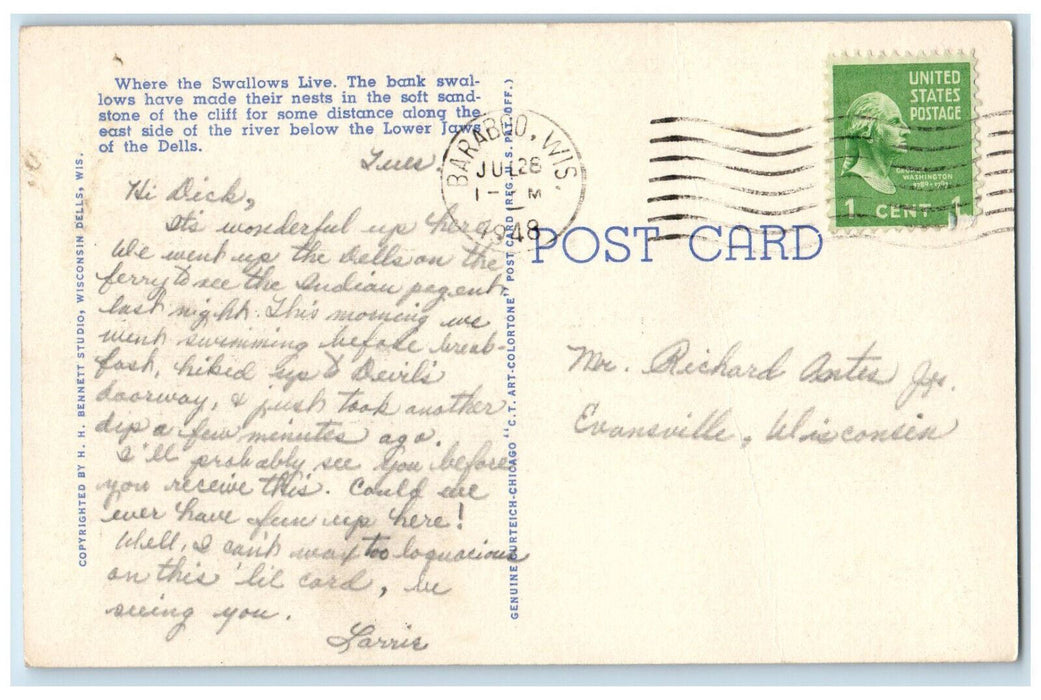 Where the Swallows Live. The bank swal-
lows have made their nests in the soft sand-
stone of the cliff for some distance along the
east side of the river below the Lower Jaws
of the Dells.
Tues.
Hi Dick,
It's wonderful up here.
We went up the Dells on the
ferry to see the Indian pagent
last night. This morning we
went swimming before break-
fast, hiked up to Devil's
doorway, & just took another
dip a few minutes ago.
I'll probably see you before
you receive this. Could we
ever have fun up here!
Well, I can't wax too loquacious
on this 'lil card, be
seeing you.
Lorris
COPYRIGHTED BY H. H. BENNETT STUDIO, WISCONSIN DELLS, WIS.
GENUINE CURTEICH-CHICAGO "C.T. ART-COLORTONE" POST CARD (REG. U.S. PAT. OFF.)
BARABOO, WIS.
JUL 28
1 - M
1948
POST CARD
UNITED
STATES
POSTAGE
GEORGE
WASHINGTON
1789-1797
1 CENT 1
Mr. Richard Antes Jr.
Evansville, Wisconsin